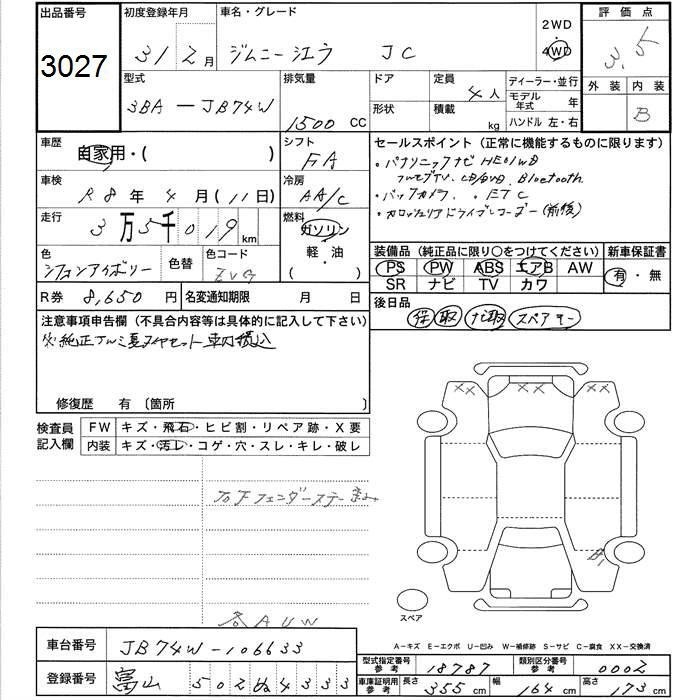 出品番号
3027
初度登録年月
31 2月
車名・グレード
ジムニーシエラ JC
2WD
4WD
評価点
3.5
外装 内装
B
型式
3BA-JB74W
排気量
1500 CC
ドア
形状
定員
4人
積載
kg
ディーラー・並行
モデル年式 年
ハンドル 左・右
車歴
自家用・( )
シフト
FA
車検
R8年4月(11日)
冷房
AA/C
走行
3万5千019km
燃料
ガソリン
軽・油
( )
色
シフォンアイボリー
色替
色コード
ZVG
R券 8,650円
名変通知期限 月 日
セールスポイント(正常に機能するものに限ります)
・パナソニックナビ HE01WD
フルセグTV. CD/DVD. Bluetooth
・バックカメラ. ・ETC
・カロッツェリアドライブレコーダー(前後)
装備品(純正品に限り○をつけてください)
新車保証書
PS PW ABS エアB AW
SR ナビ TV カワ
有・無
後日品
保 取 ナビ取 スペアキー
注意事項申告欄(不具合内容等は具体的に記入して下さい)
※純正アルミ夏タイヤセット車内積込
修復歴 有 〔箇所 〕
検査員記入欄
FW キズ・飛石・ヒビ割・リペア跡・X要
内装 キズ・汚レ・コゲ・穴・スレ・キレ・破レ
XX
XX XX
B1
スペア
A-キズ E-エクボ U-凹み W-補修跡 S-サビ C-腐食 XX-交換済
車台番号
JB74W-106633
登録番号
富山 502 ぬ 4333
型式指定番号参考
18787
類別区分番号参考
0002
車庫証明用参考
長さ 355cm
幅 164cm
高さ 173cm